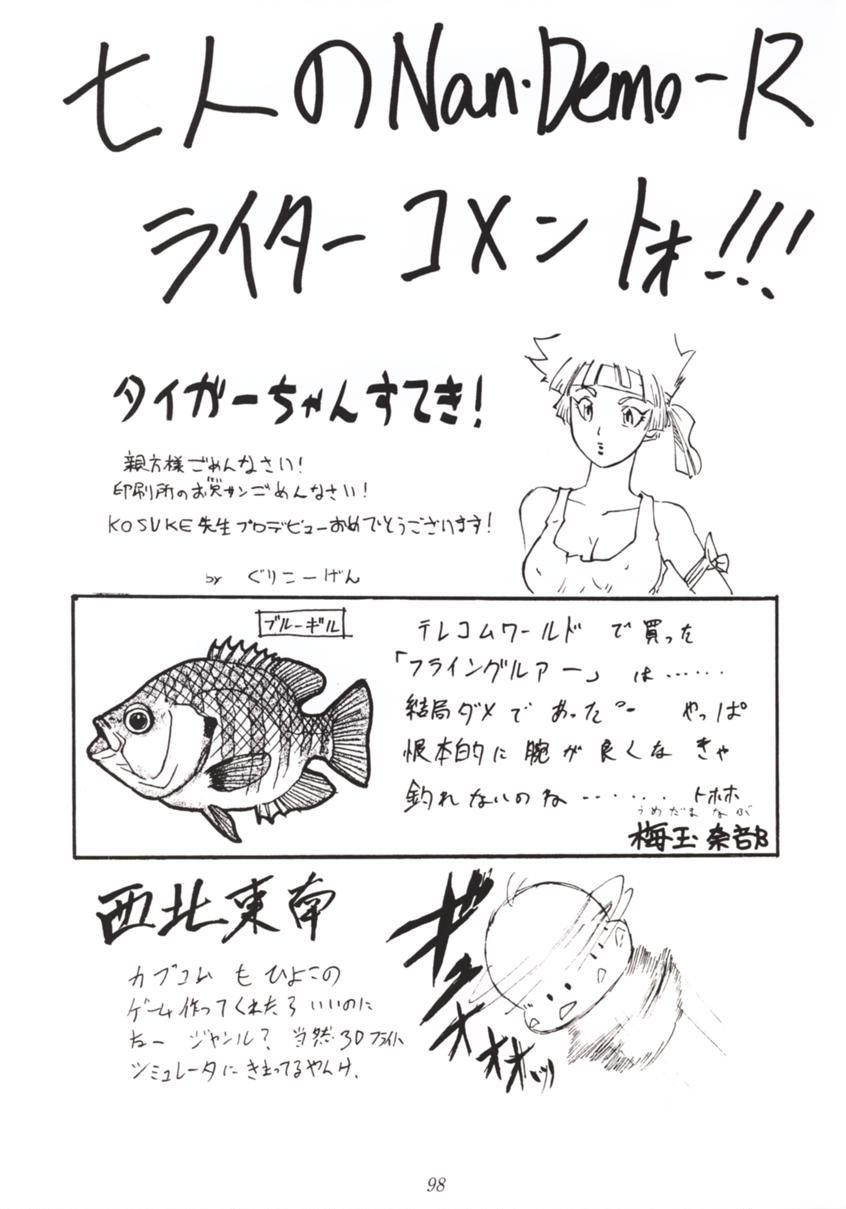 七人のNan・Demo-R
ライターコメントォ!!!
タイガーちゃんすてき!
親方様ごめんなさい!
印刷所のお兄サンごめんなさい!
KOSUKE先生プロデビューおめでとうございます!
by ぐりこーげん
ブルーギル
テレコムワールド で買った
「フライングルアー」は……
結局ダメであった。 やっぱ
根本的に腕が良くなきゃ
釣れないのね……… トホホ
うめだまなぶ
梅玉奈部
西北東南
カプコム も ひよこの
ゲーム作ってくれたらいいのに
なー ジャンル? 当然3Dフライト
シミュレータにきまってるやんけ、
ギュオオオオッッ
98